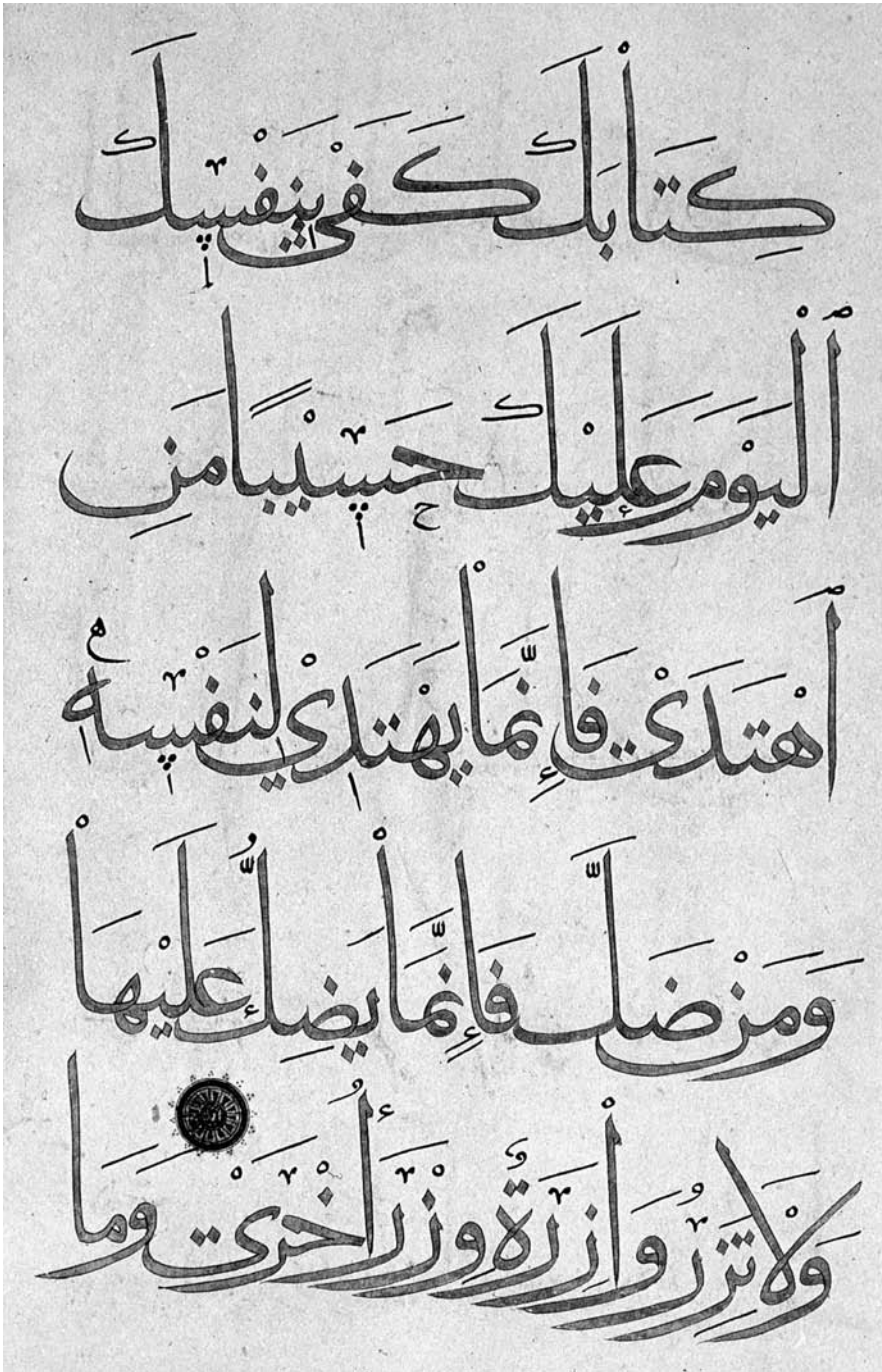 كِتَابَكَ كَفَى بِنَفْسِكَ
ٱلْيَوْمَ عَلَيْكَ حَسِيْبًا مَنِ
ٱهْتَدَىْ فَإِنَّمَا يَهْتَدِيْ لِنَفْسِهٖ
وَمَنْ ضَلَّ فَإِنَّمَا يَضِلُّ عَلَيْهَا
وَلَا تَزِرُ وَازِرَةٌ وِزْرَ أُخْرَىْ وَمَا